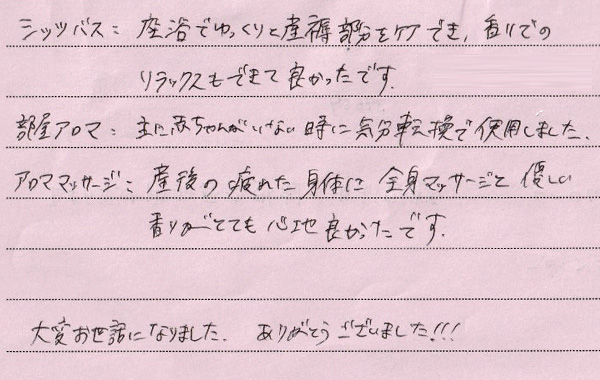 シッツバス：座浴でゆっくりと産褥部分をケアでき、香りでの
リラックスもできて良かったです.
部屋アロマ：主に赤ちゃんがいない時に気分転換で使用しました.
アロママッサージ：産後の疲れた身体に全身マッサージと優しい
香りがとても心地良かったです.
大変お世話になりました. ありがとうございました!!!